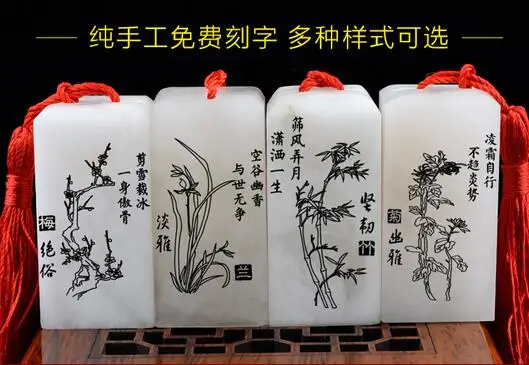 纯手工免费刻字 多种样式可选
剪雪裁冰
一身傲骨
梅
绝俗
空谷幽香
与世无争
淡雅
兰
筛风弄月
潇洒一生
坚韧
竹
凌霜自行
不趋炎势
菊
幽雅